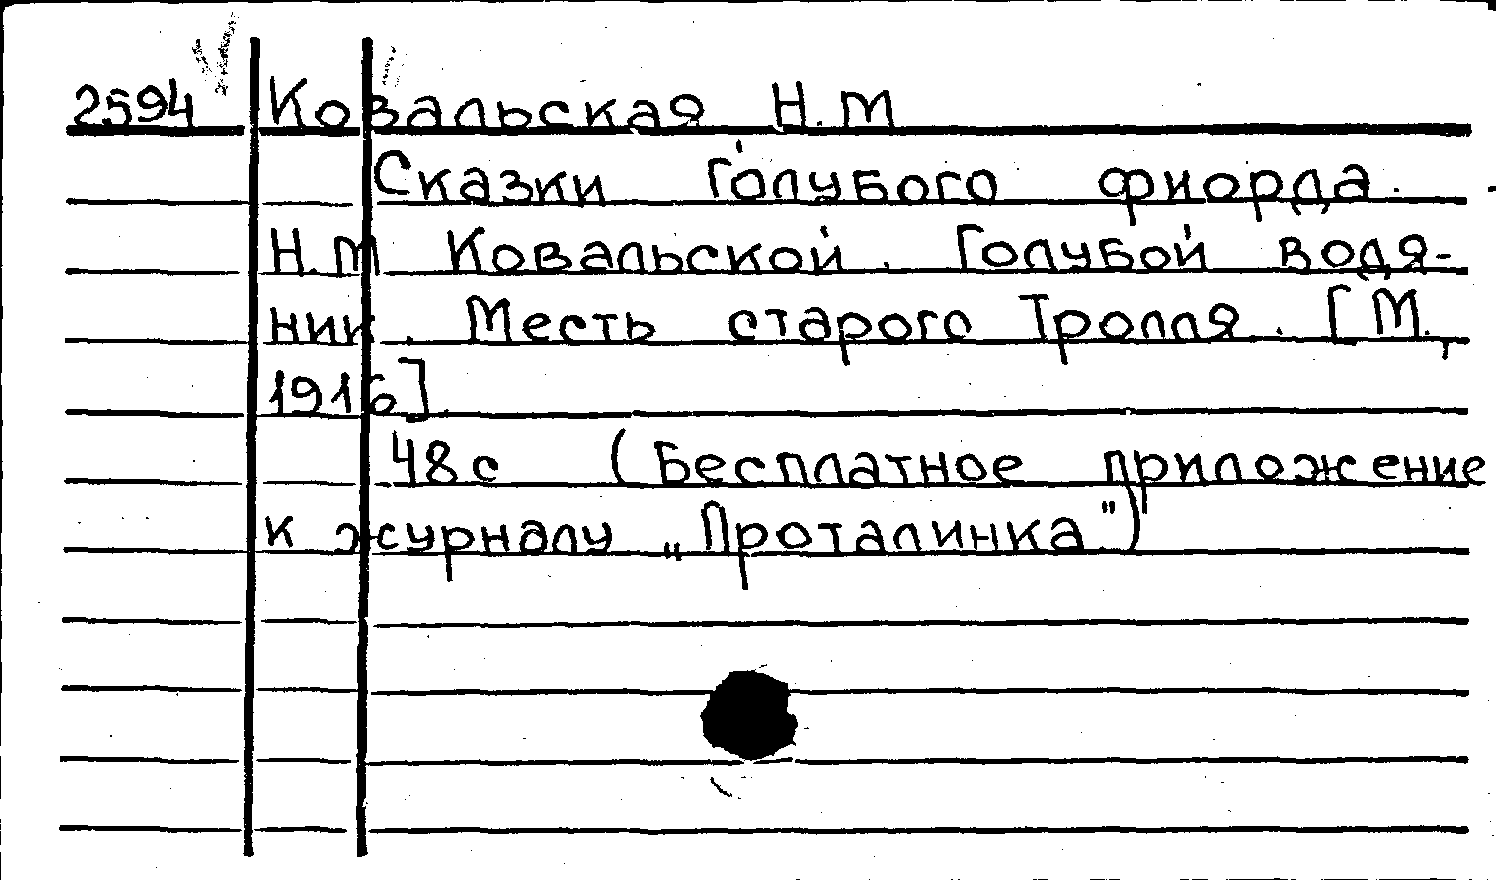 2594 Ковальская Н.М
Сказки голубого фиорда.
Н.М Ковальской. Голубой водя-
ник. Месть старого Тролля. [М.,
1916]
48с (Бесплатное приложение
к журналу „Проталинка")